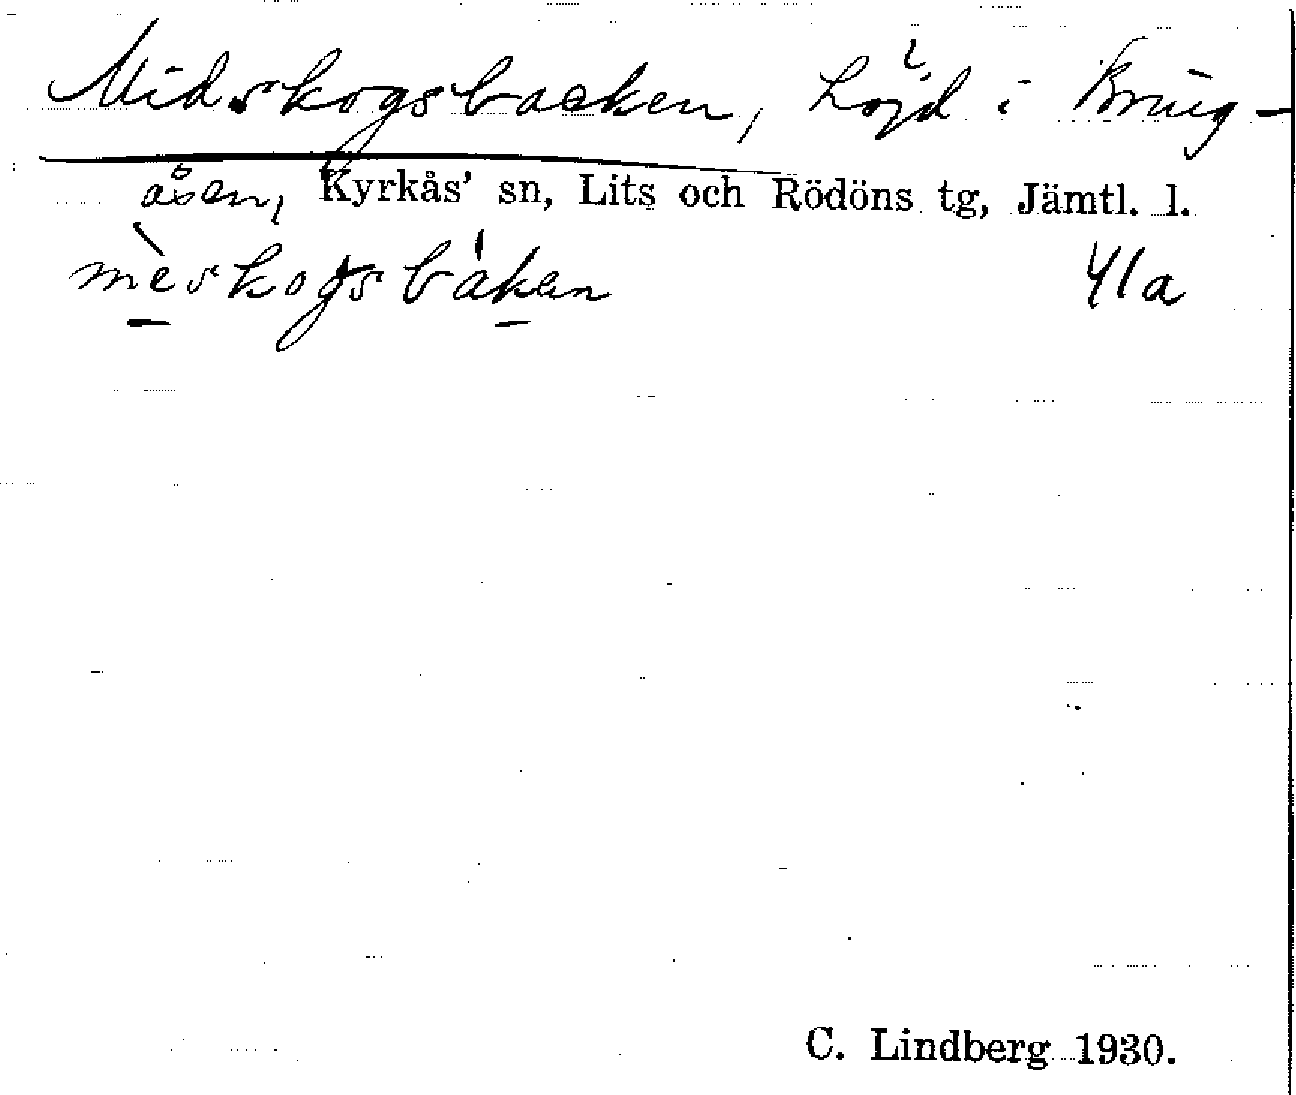 Midskogsbacken, höjd i Bring-
åsen, Kyrkås' sn, Lits och Rödöns tg, Jämtl. l.
mèskogsbákan 41a
C. Lindberg 1930.